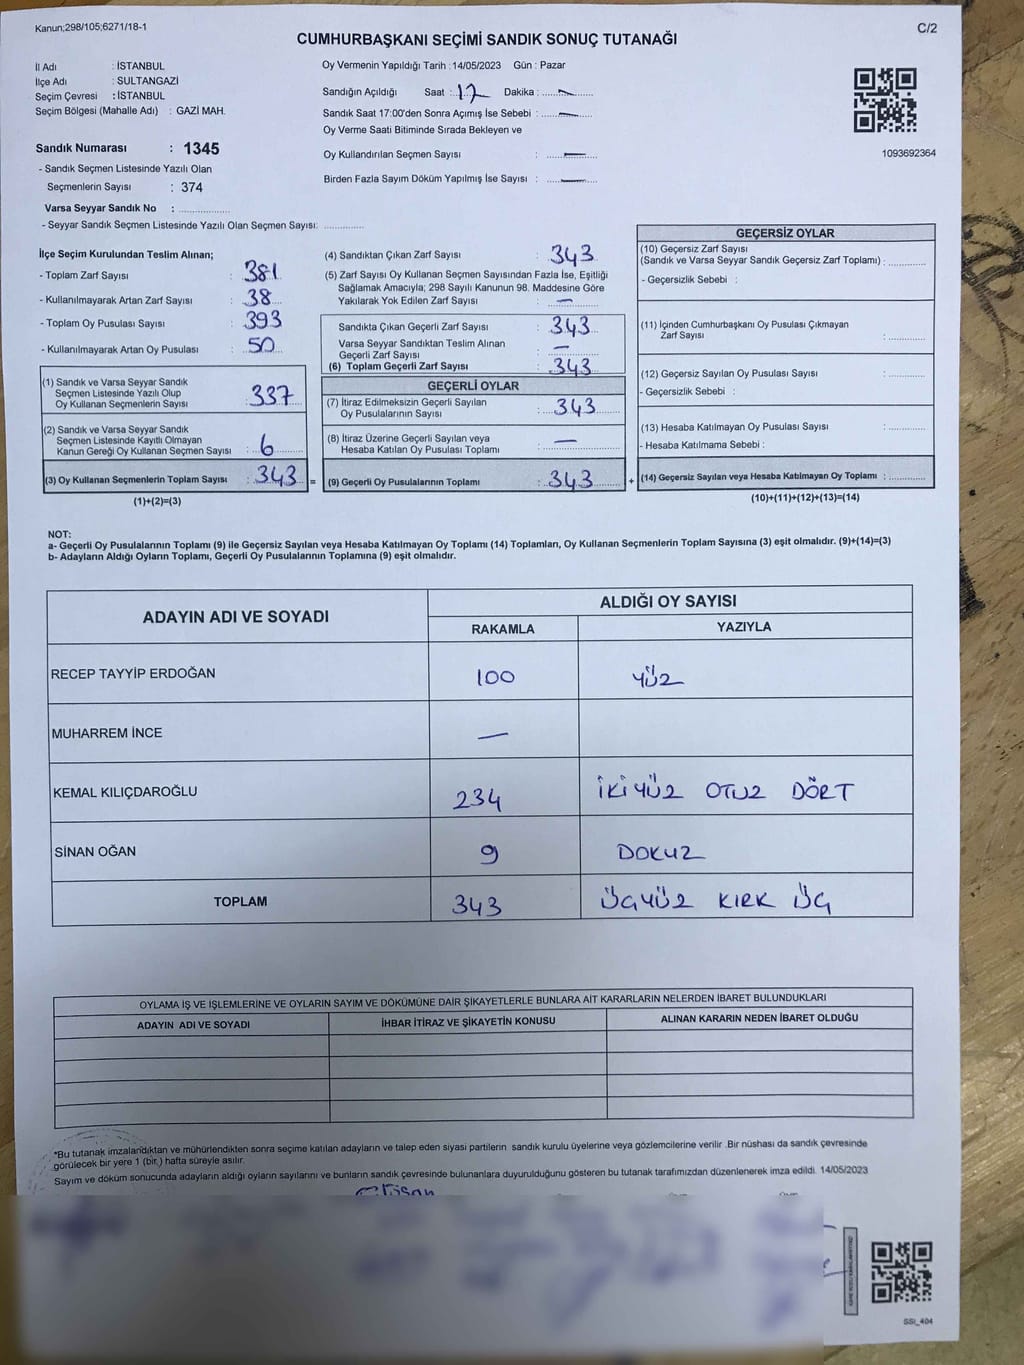 Kanun;298/105;6271/18-1
C/2
CUMHURBAŞKANI SEÇİMİ SANDIK SONUÇ TUTANAĞI
İl Adı : İSTANBUL
İlçe Adı : SULTANGAZİ
Seçim Çevresi : İSTANBUL
Seçim Bölgesi (Mahalle Adı) : GAZİ MAH.
Sandık Numarası : 1345
- Sandık Seçmen Listesinde Yazılı Olan
Seçmenlerin Sayısı : 374
Varsa Seyyar Sandık No : ..................
- Seyyar Sandık Seçmen Listesinde Yazılı Olan Seçmen Sayısı: ..............
Oy Vermenin Yapıldığı Tarih : 14/05/2023 Gün : Pazar
Sandığın Açıldığı Saat : 17 Dakika : —
Sandık Saat 17:00'den Sonra Açımış İse Sebebi : —
Oy Verme Saati Bitiminde Sırada Bekleyen ve
Oy Kullandırılan Seçmen Sayısı : —
Birden Fazla Sayım Döküm Yapılmış İse Sayısı : —
1093692364
İlçe Seçim Kurulundan Teslim Alınan;
- Toplam Zarf Sayısı : 381
- Kullanılmayarak Artan Zarf Sayısı : 38
- Toplam Oy Pusulası Sayısı : 393
- Kullanılmayarak Artan Oy Pusulası : 50
(1) Sandık ve Varsa Seyyar Sandık
Seçmen Listesinde Yazılı Olup
Oy Kullanan Seçmenlerin Sayısı : 337
(2) Sandık ve Varsa Seyyar Sandık
Seçmen Listesinde Kayıtlı Olmayan
Kanun Gereği Oy Kullanan Seçmen Sayısı : 6
(3) Oy Kullanan Seçmenlerin Toplam Sayısı : 343 =
(1)+(2)=(3)
(4) Sandıktan Çıkan Zarf Sayısı : 343
(5) Zarf Sayısı Oy Kullanan Seçmen Sayısından Fazla İse, Eşitliği
Sağlamak Amacıyla; 298 Sayılı Kanunun 98. Maddesine Göre
Yakılarak Yok Edilen Zarf Sayısı : —
Sandıkta Çıkan Geçerli Zarf Sayısı : 343
Varsa Seyyar Sandıktan Teslim Alınan
Geçerli Zarf Sayısı : —
(6) Toplam Geçerli Zarf Sayısı : 343
GEÇERLİ OYLAR
(7) İtiraz Edilmeksizin Geçerli Sayılan
Oy Pusulalarının Sayısı : 343
(8) İtiraz Üzerine Geçerli Sayılan veya
Hesaba Katılan Oy Pusulası Toplamı : —
(9) Geçerli Oy Pusulalarının Toplamı : 343 +
GEÇERSİZ OYLAR
(10) Geçersiz Zarf Sayısı
(Sandık ve Varsa Seyyar Sandık Geçersiz Zarf Toplamı) : ..............
- Geçersizlik Sebebi :
(11) İçinden Cumhurbaşkanı Oy Pusulası Çıkmayan
Zarf Sayısı : ..............
(12) Geçersiz Sayılan Oy Pusulası Sayısı : ..............
- Geçersizlik Sebebi :
(13) Hesaba Katılmayan Oy Pusulası Sayısı : ..............
- Hesaba Katılmama Sebebi :
(14) Geçersiz Sayılan veya Hesaba Katılmayan Oy Toplamı : ..............
(10)+(11)+(12)+(13)=(14)
NOT:
a- Geçerli Oy Pusulalarının Toplamı (9) ile Geçersiz Sayılan veya Hesaba Katılmayan Oy Toplamı (14) Toplamları, Oy Kullanan Seçmenlerin Toplam Sayısına (3) eşit olmalıdır. (9)+(14)=(3)
b- Adayların Aldığı Oyların Toplamı, Geçerli Oy Pusulalarının Toplamına (9) eşit olmalıdır.
ADAYIN ADI VE SOYADI
ALDIĞI OY SAYISI
RAKAMLA YAZIYLA
RECEP TAYYİP ERDOĞAN 100 YÜZ
MUHARREM İNCE —
KEMAL KILIÇDAROĞLU 234 İKİYÜZ OTUZ DÖRT
SİNAN OĞAN 9 DOKUZ
TOPLAM 343 ÜÇYÜZ KIRK ÜÇ
OYLAMA İŞ VE İŞLEMLERİNE VE OYLARIN SAYIM VE DÖKÜMÜNE DAİR ŞİKAYETLERLE BUNLARA AİT KARARLARIN NELERDEN İBARET BULUNDUKLARI
ADAYIN ADI VE SOYADI İHBAR İTİRAZ VE ŞİKAYETİN KONUSU ALINAN KARARIN NEDEN İBARET OLDUĞU
*Bu tutanak imzalandıktan ve mühürlendikten sonra seçime katılan adayların ve talep eden siyasi partilerin sandık kurulu üyelerine veya gözlemcilerine verilir .Bir nüshası da sandık çevresinde
görülecek bir yere 1 (bir ) hafta süreyle asılır.
Sayım ve döküm sonucunda adayların aldığı oyların sayılarını ve bunların sandık çevresinde bulunanlara duyurulduğunu gösteren bu tutanak tarafımızdan düzenlenerek imza edildi. 14/05/2023
SSI_404